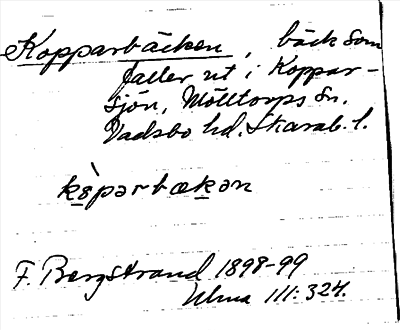 Kopparbäcken, bäck som
faller ut i Koppar-
sjön, Mölltorps sn.
Vadsbo hd. Skarab. l.
kɷ̀pərbækən
F. Bergstrand 1898-99
Ulma 111:324.